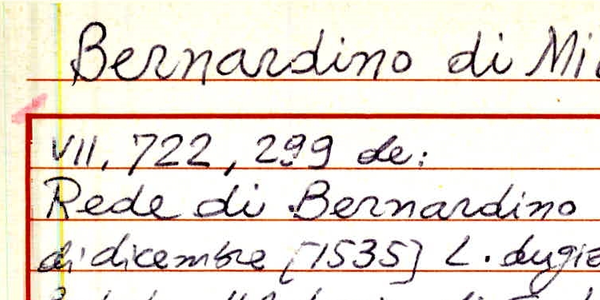 Bernardino di Mi
VII, 722, 299 de:
Rede di Bernardino
di dicembre [1535] L.